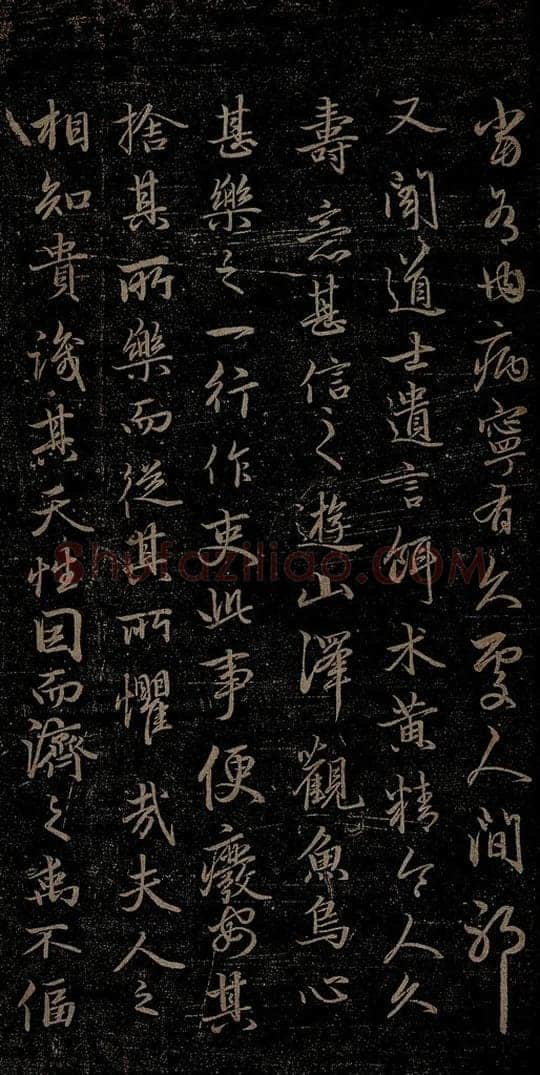 當為内病寧有久處人間邪
又聞道士遺言餌术黃精令人久
壽意甚信之遊山澤觀魚鳥心
甚樂之一行作吏此事便癈安其
捨其所樂而從其所懼哉夫人之
相知貴識其天性因而濟之禹不偪
Shufaziliao.COM